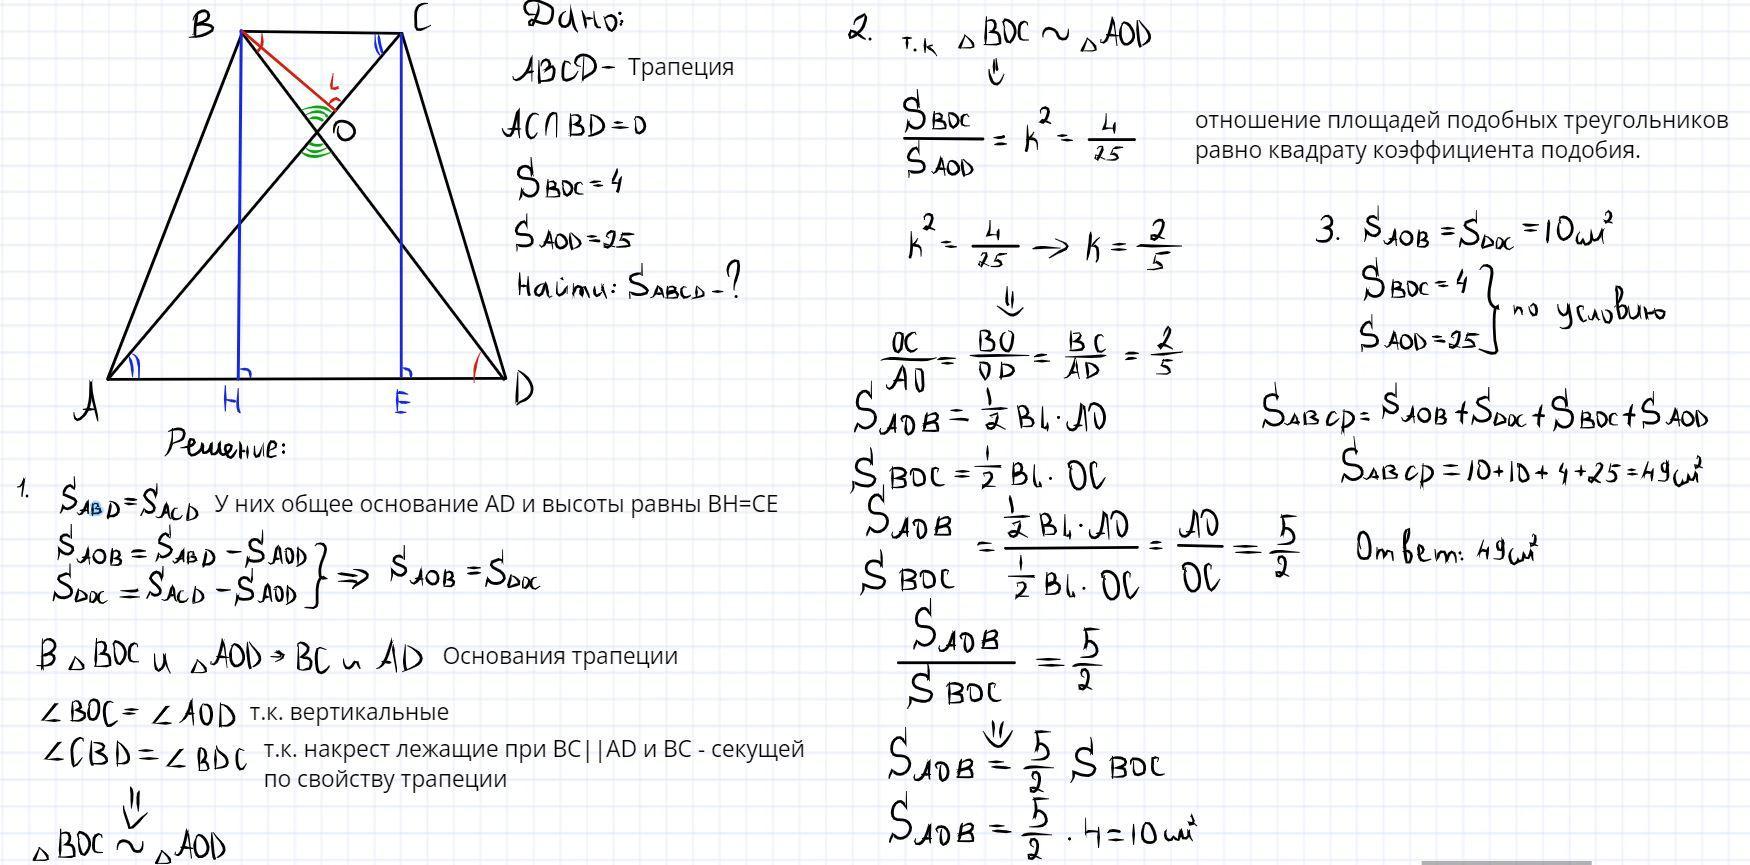 B
C
L
O
A
H
E
D
Дано:
ABCD - Трапеция
AC∩BD=O
S BOC = 4
S AOD = 25
Найти: S ABCD - ?
Решение:
1. S ABD = S ACD У них общее основание AD и высоты равны BH=CE
S AOB = S ABD - S AOD
S DOC = S ACD - S AOD } => S AOB = S DOC
В △BOC и △AOD → BC и AD Основания трапеции
∠BOC = ∠AOD т.к. вертикальные
∠CBD = ∠BDC т.к. накрест лежащие при BC||AD и BC - секущей
по свойству трапеции
⇓
△BOC ~ △AOD
2. т.к △BOC ~ △AOD
⇓
S BOC / S AOD = k² = 4/25
отношение площадей подобных треугольников
равно квадрату коэффициента подобия.
k² = 4/25 → k = 2/5
⇓
OC/AO = BO/OD = BC/AD = 2/5
S AOB = 1/2 BL · AO
S BOC = 1/2 BL · OC
S AOB / S BOC = (1/2 BL · AO) / (1/2 BL · OC) = AO/OC = 5/2
S AOB / S BOC = 5/2
⇓
S AOB = 5/2 S BOC
S AOB = 5/2 · 4 = 10 см²
3. S AOB = S DOC = 10 см²
S BOC = 4
S AOD = 25 } по условию
S ABCD = S AOB + S DOC + S BOC + S AOD
S ABCD = 10+10+4+25=49 см²
Ответ: 49 см²